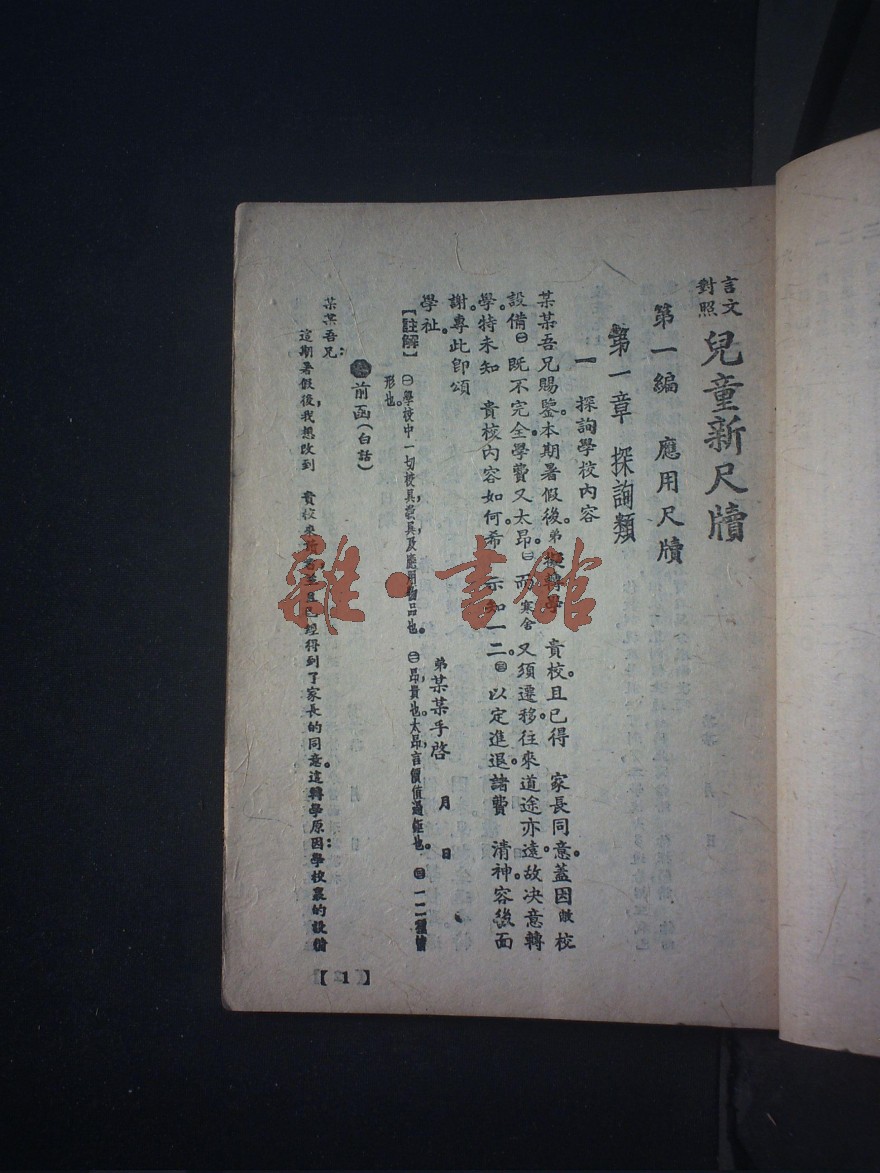 言文
對照
兒童新尺牘
第一編 應用尺牘
第一章 探詢類
一 探詢學校內容
某某吾兄賜鑒。本期暑假後。弟擬轉學 貴校。且已得 家長同意。蓋因敝校
設備㊀既不完全。學費又太昂㊁而寒舍又須遷移。往來道途亦遠。故決意轉
學。特未知 貴校內容如何。希 示知一二㊂以定進退。諸費 清神。容後面
謝。專此卽頌
學祉。
弟某某手啓 月 日
【註解】㊀學校中一切校具,裳具,及應用物品也。㊁昂,貴也。太昂,言價値過鉅也。㊂一二,種情
形也。
前函(白話)
某某吾兄:
這期暑假後,我想改到 貴校來 且已經得到了家長的同意。這轉學原因:學校裏的設備
【1】
雜·書館